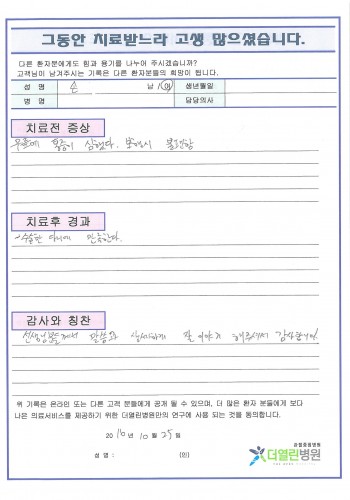 그동안 치료받느라 고생 많으셨습니다.
다른 환자분에게도 힘과 용기를 나누어 주시겠습니까?
고객님이 남겨주시는 기록은 다른 환자분들의 희망이 됩니다.
성 명 손 남 / 여 생년월일
병 명 담당의사
치료전 증상
무릎에 통증이 심했다. 보행시 불편함
치료후 경과
수술한 다리에 만족한다.
감사와 칭찬
선생님들께서 말씀도 상세하게 잘 이야기 해주셔서 감사합니다
위 기록은 온라인 또는 다른 고객 분들에게 공개 될 수 있으며, 더 많은 환자 분들에게 보다
나은 의료서비스를 제공하기 위한 더열린병원만의 연구에 사용 되는 것을 동의합니다.
2016년 10월 25일
성 명 : (인)
관절중점병원
더열린병원